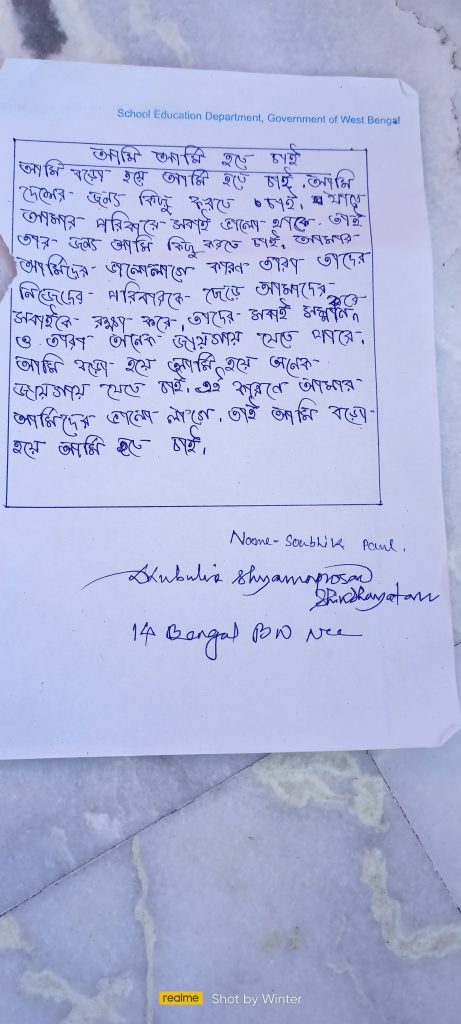 School Education Department, Government of West Bengal
আমি আর্মি হতে চাই
আমি বড়ো হয়ে আর্মি হতে চাই. আমি
দেশের জন্য কিছু করতে চাই. যাতে
আমার পরিবারে সবাই ভালো থাকে. তাই
তার জন্য আমি কিছু করতে চাই. আমার
আর্মিদের ভালোলাগে কারণ তারা তাদের
নিজেদের পরিবারকে ছেড়ে আমাদের
সবাইকে রক্ষা করে, তাদের সবাই করে
ও তারা অনেক জায়গায় যেতে পারে.
আমি বড়ো হয়ে আর্মি হয়ে অনেক
জায়গায় যেতে চাই. এই কারণে আমার
আর্মিদের ভালো লাগে. তাই আমি বড়ো
হয়ে আর্মি হতে চাই.
Name- Soubhik Paul.
Dhubulia Shyamaprosad
Shikshayatan
14 Bengal BN NCC
realme Shot by Winter